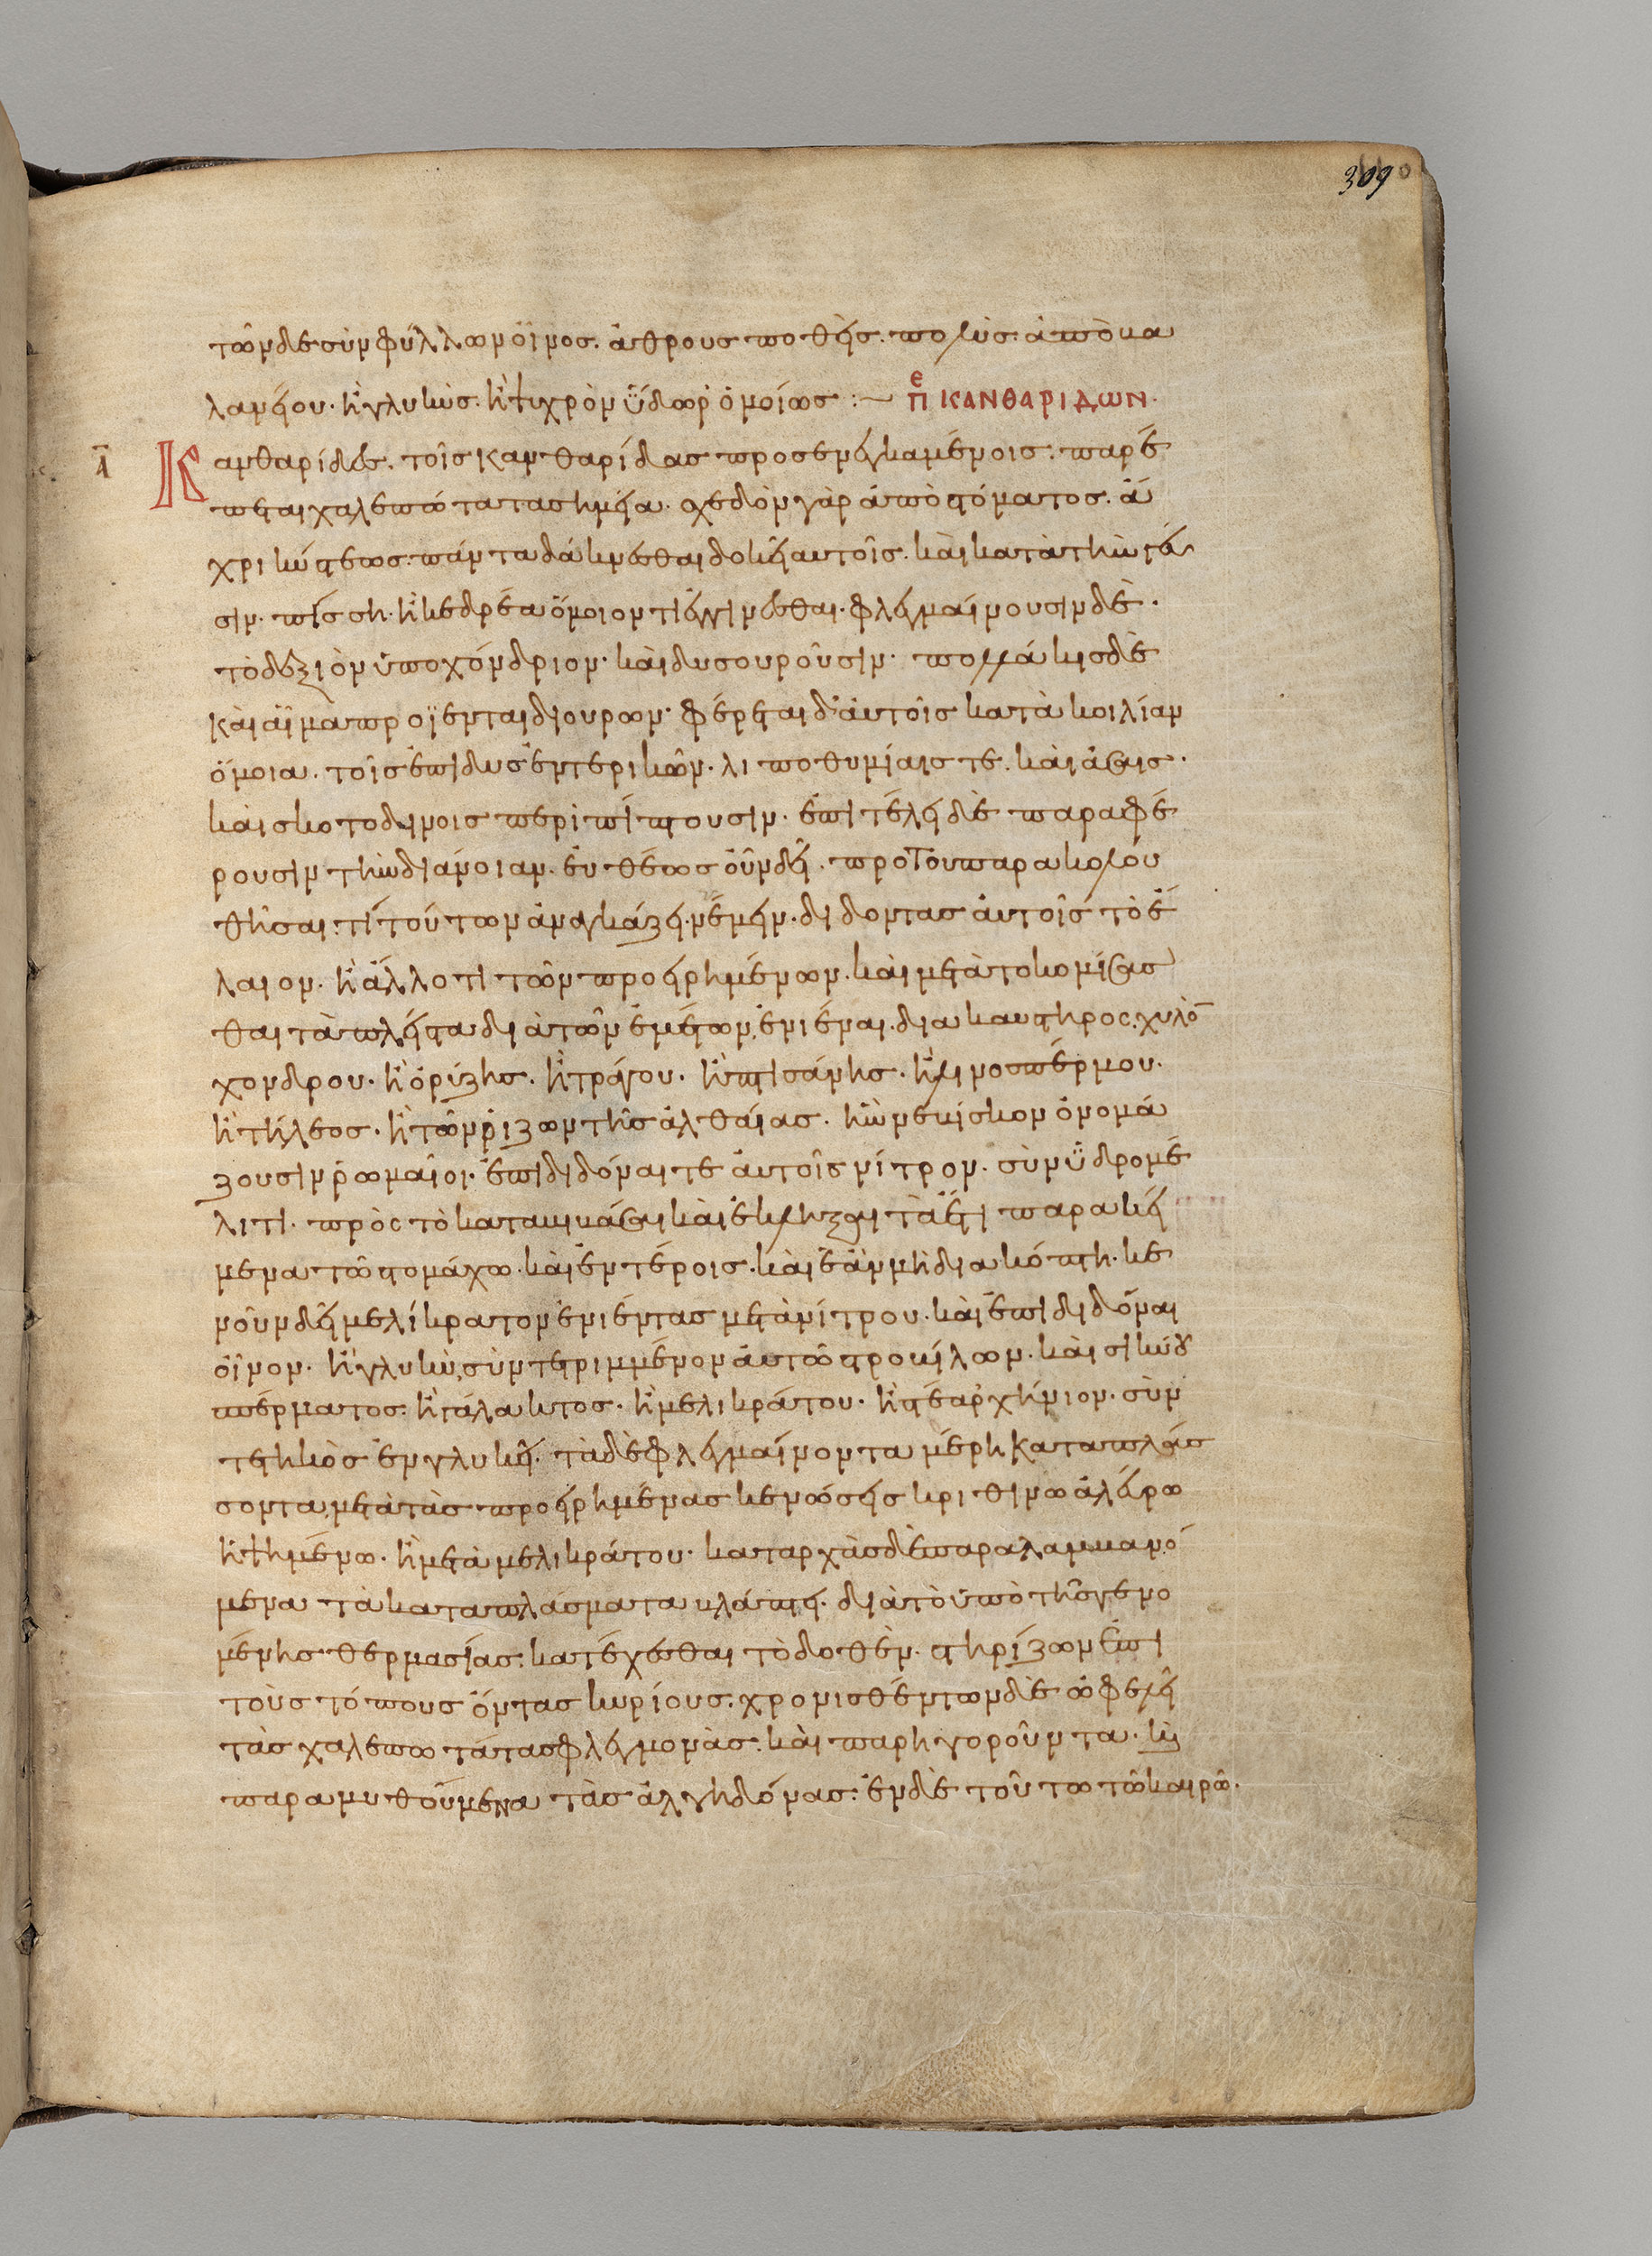 309
τῶνδε σὺν φύλλων οἶνος. ἄθρους ποθεὶς. πολὺς. ἀπὸ κα
λαμείου. ἢ γλυκὺς. ἢ ψυχρὸν ὕδωρ ὁμοίως :— πε ΚΑΝΘΑΡΙΔΩΝ.
α Κανθαρίδες. τοῖς κανθαρίδας προσενεγκαμένοις. παρέ
πεται χαλεπώτατα σημεῖα. σχεδὸν γὰρ ἀπὸ στόματος. ἄ
χρι κύστεως. πάντα δάκνεσθαι δοκεῖ αὐτοῖς. καὶ κατὰ τὴν γεῦ
σιν. πίσση. ἢ κεδρέα ὅμοιον τι ἐγγίνεσθαι. φλεγμαίνουσιν δὲ.
τὸ δεξιὸν ὑποχόνδριον. καὶ δυσουροῦσιν. πολλάκις δὲ
καὶ αἷμα προΐενται δι ουρων. φέρεται δ' αὐτοῖς κατὰ κοιλίαν
ὅμοια. τοῖς ἐπὶ δυσεντερικῶν. λιποθυμίαις τε. καὶ ἄσαις.
καὶ σκοτοδινοις περιπίπτουσιν. ἐπὶ τέλει δὲ παραφέ
ρουσιν τὴν διάνοιαν. εὐθέως οὖν δεῖ. προ τοῦ παρακολου
θῆσαι τί τούτων ἀναγκάζειν ἐμεῖν. διδοντας αὐτοῖς τὸ ἔ
λαιον. ἢ ἄλλο τι τῶν προειρημένων. καὶ μετὰ το κομίσασ
θαι τὰ πλεῖστα διὰ τῶν ἐμέτων, ἐνιέναι. δια καυστηρος. χυλὸν
χονδρου. ἢ ὀρύζης. ἢ τράγου. ἢ πτισάνης. ἢ λινοσπέρμου.
ἢ τήλεος. ἢ τῶν ῥιζων τῆς ἀλθαίας. ἣν ἐκίσκον ὀνομά
ζουσιν ῥωμαῖοι. ἐπιδιδόναι τε αὐτοῖς νίτρον. σὺν ὑδρομέ
λιτι. πρὸς τὸ κατανικάσαι καὶ ἐκκλήζσαι τὰ ἔτι παρακεί
μενα τῶ στομάχω. καὶ ἐντέροις. καὶ ἐὰν μὴ διακόπτη. κε
νοῦν δεῖ μελίκρατον ἐνιέντας μετὰ νίτρου. καὶ ἐπιδιδόναι
οἶνον. ἢ γλυκὺ, σὺν τετριμμένον αὐτῶ στροβίλων. καὶ σικύου
σπέρματος. ἢ γάλακτος. ἢ μελικράτου. ἢ στέαρ χήνιον. σὺν
τετηκὸς ἐν γλυκεῖ. τὰ δὲ φλεγμαίνοντα μέρη καταπλάσ
σοντα, μετὰ τὰς προειρημένας κενώσεις κριθίνω ἀλεύρω
ἡψημένω. ἢ μετὰ μελικράτου. καταρχὰς δὲ παραλαμβανό
μενα τὰ καταπλάσματα βλάπτει. διὰ τὸ ὑπὸ τῆς γενο
μένης θερμασίας. κατέχεσθαι τὸ δοθὲν. στηρίζων ἐπὶ
τοὺς τόπους ὄντας κυρίους. χρονισθέντων δὲ ὠφελεῖ
τὰς χαλεπωτάτας φλεγμονὰς. καὶ παρηγοροῦντα. καὶ
παραμυθούμενα τὰς ἀλγηδόνας. ἐν δὲ τούτω τῶ καιρῶ.